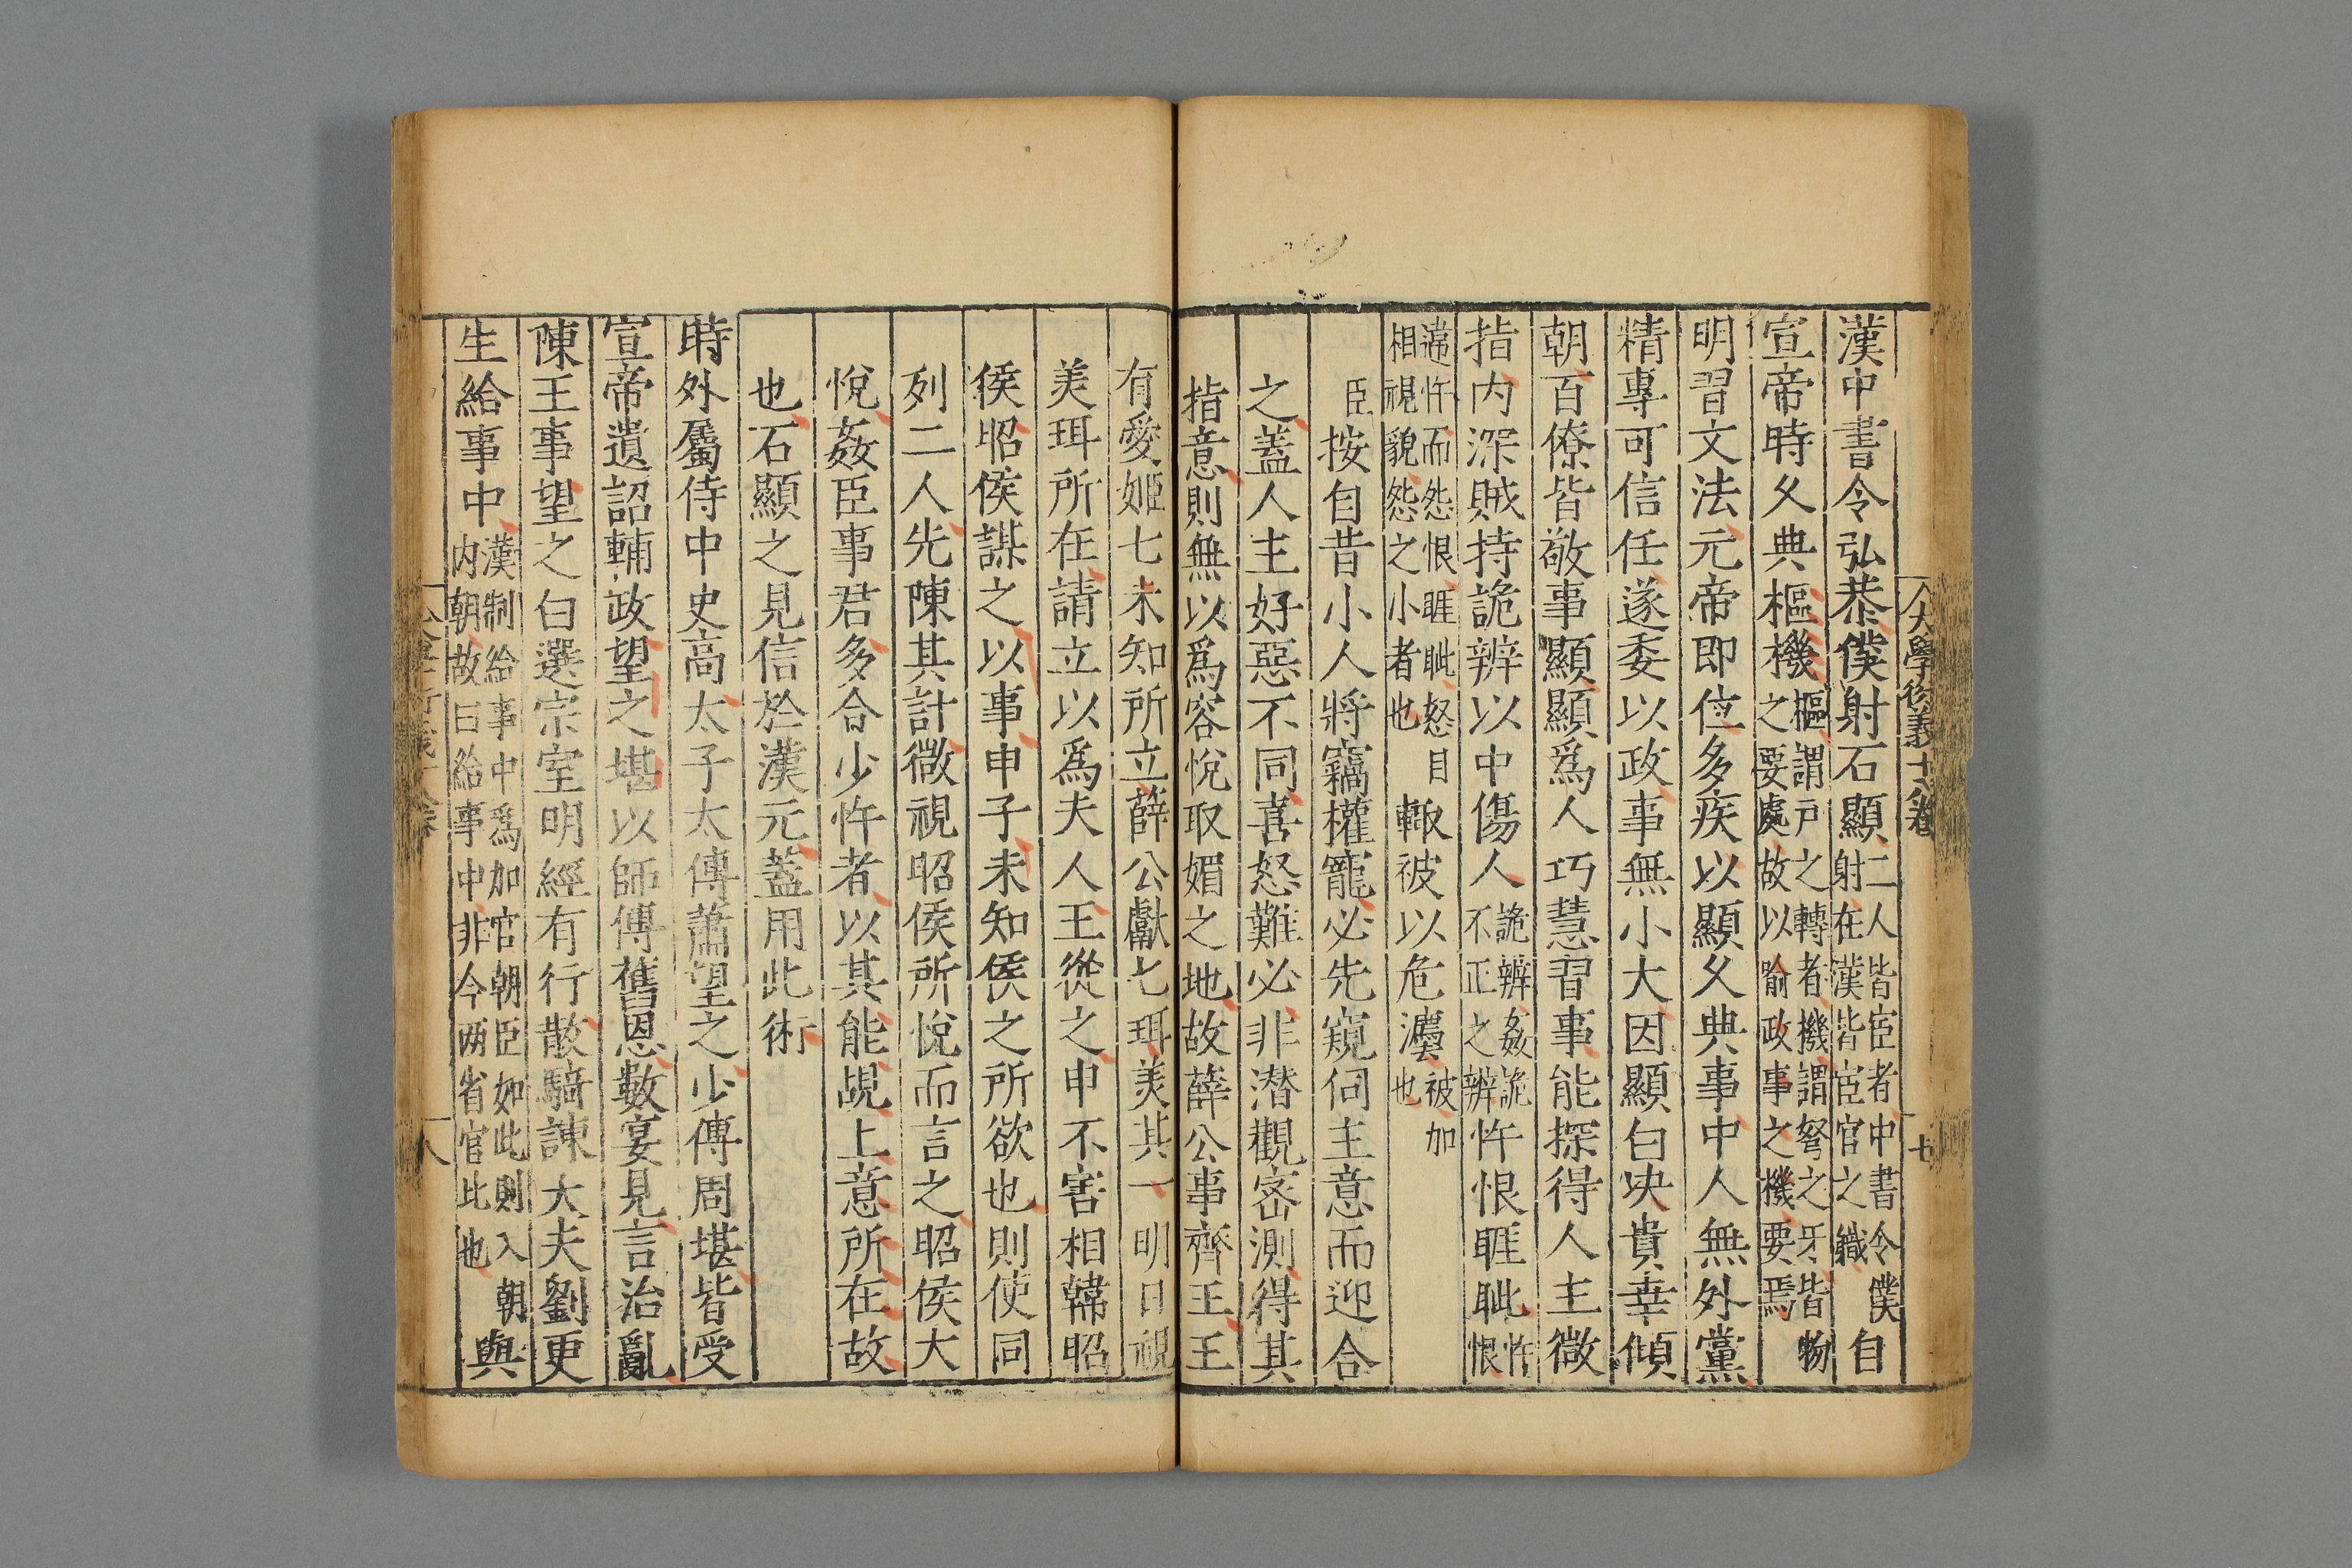 大學衍義十八卷
七
漢中書令弘恭僕射石顯二人皆宦者中書令僕射在漢皆宦官之職自
宣帝時久典樞機樞謂戶之轉者機謂弩之牙皆物之要處故以喻政事之機要焉
明習文法元帝即位多疾以顯久典事中人無外黨
精專可信任遂委以政事無小大因顯白决貴幸傾
朝百僚皆敬事顯顯爲人巧慧習事能探得人主微
指内深賊持詭辨以中傷人詭辨姦詭不正之辨忤恨睚眦忤恨
違忤而怨恨睚眦怒目相視貌怨之小者也輙被以危灋被加也
臣按自昔小人將竊權寵必先窺伺主意而迎合
之蓋人主好惡不同喜怒難必非潛觀密測得其
指意則無以爲容悅取媚之地故薛公事齊王王
有愛姬七未知所立薛公獻七珥美其一明日視
美珥所在請立以爲夫人王從之申不害相韓昭
侯昭侯謀之以事申子未知侯之所欲也則使同
列二人先陳其計微視昭侯所悅而言之昭侯大
悅姦臣事君多合少忤者以其能覘上意所在故
也石顯之見信於漢元蓋用此術
時外屬侍中史高太子太傅蕭望之少傅周堪皆受
宣帝遺詔輔政望之堪以師傅舊恩數宴見言治亂
陳王事望之白選宗室明經有行散騎諫大夫劉更
生給事中漢制給事中爲加官朝臣如此則入朝内朝故曰給事中非今两省官比也與
八